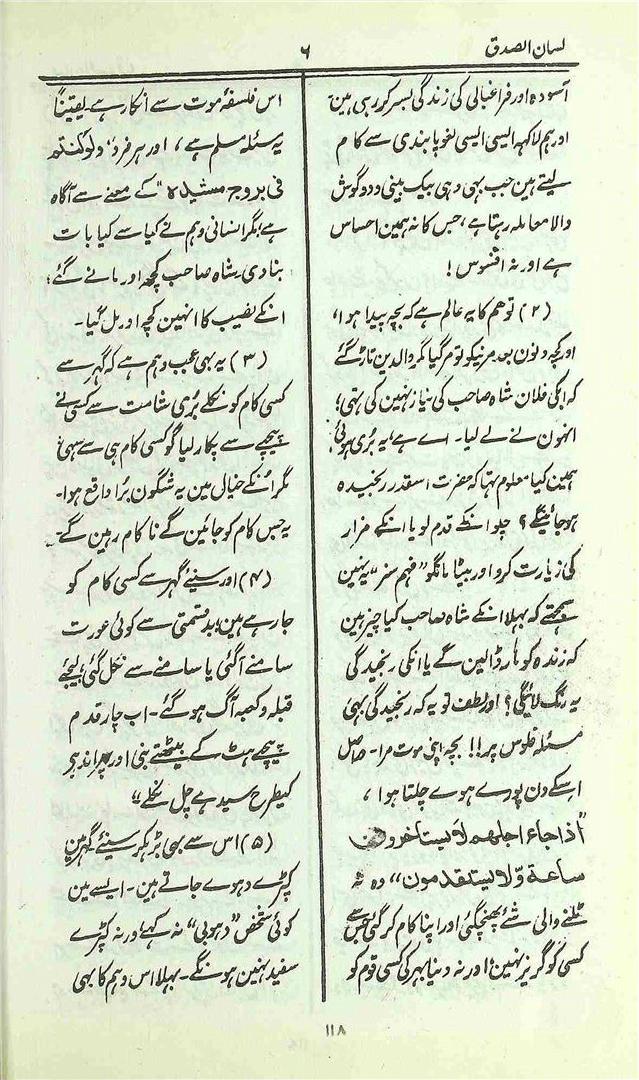 لسان الصدق
۶
آسودہ اور فراغبالی کی زندگی بسر کر رہی ہین
اور ہم لاکہہ ایسی ایسی لغو پابندی سے کام
لیتے ہین جب بہی وہی بیک بینی و دو گوش
والا معاملہ رہتا ہے، جس کا نہ ہمین احساس
ہے اور نہ افسوس!
(۲) توہم کا یہ عالم ہے کہ بچہ پیدا ہوا،
اور کچہ دنون بعد مر گیا تو گہر والدین تاڑ گئے
کہ انکی فلان شاہ صاحب کی نیاز نہین کی تہی؛
انہون نے لے لیا۔ اے ہے، یہ بُری ہوئی!
ہمین کیا معلوم تہا کہ حضرت اسقدر رنجیدہ
ہو جائینگے؟ چلو انکے قدم لو یا انکے مزار
کی زیارت کرو اور بیٹا مانگو "فہم سر" یہ نہین
سمجہتے کہ بہلا انکے شاہ صاحب کیا چیز ہین
کہ زندہ کو مار ڈالین گے یا انکی رنجیدگی
یہ رنگ لائیگی؟ اور لطف تو یہ کہ رنجیدگی بہی
مسئلہ فلوس پر!! بچہ اپنی موت مرا۔ حاصل
اسکے دن پورے ہوے چلتا ہوا،
"اذا جاء اجلہم لا یستاخرون
ساعة وّلا یستقدمون" وہ نہ
ٹلنے والی شے پہنچگئی اور اپنا کام کر گئی جس سے
کسی کو گریز نہین؛ اور نہ دنیا بہر کی کسی قوم کو
اس فلسفۂ موت سے انکار ہے۔ یقیناً
یہ مسئلہ مسلم ہے، اور ہر فرد "ولو کنتم
فی بروج مشیدہ" کے معنے سے آگاہ
ہے؛ مگر انسانی وہم نے کیا سے کیا بات
بنا دی۔ شاہ صاحب کچہ اور مانے گئے؛
انکے نصیب کا انہین کچہ اور مل گیا۔
(۳) یہ بہی عجب وہم ہے کہ گہر سے
کسی کام کو نکلے بُری شامت سے کسی نے
پیچہے سے پکار لیا گو کسی کام ہی سے سہی؛
مگر اُنکے خیال مین یہ شگون برا واقع ہوا۔
یہ جس کام کو جائین گے ناکام رہین گے۔
(۴) اور سنیے گہر سے کسی کام کو
جا رہے ہین؛ بدقسمتی سے کوئی عورت
سامنے آگئی یا سامنے سے نکل گئی؛ لیجئے
قبلہ و کعبہ آگ ہو گئے۔ اب چار قدم
پیچہے ہٹ کے بیٹہتے بنی اور پہر اندہر
کیطرح سیدہے چل نکلے"
(۵) اس سے بہی بڑہکر سنیئے۔ گہر مین
کپڑے دہوے جاتے ہین۔ ایسے مین
کوئی شخص "دہوبی" نہ کہے؛ ورنہ کپڑے
سفید نہین ہونگے۔ بہلا اس وہم کا بہی
۱۱۸